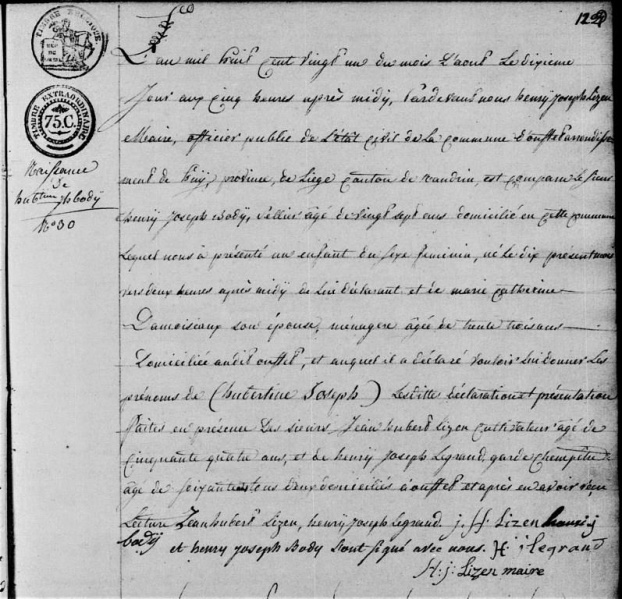 TIMBRE EXTRAORDINAIRE
75.C.
Naissance
de
hubertine jph body
N° 30
L'an mil huit cent vingt un du mois D'aout Le dixieme
Jour aux Cinq heures après midy, Pardevant nous henry Joseph Lizen
Maire, officier public de L'état civil de La commune D'ouffet arrondisse
ment de huy, province, de Liège Canton de nandrin, est comparu le sieur
henry Joseph Body, Sellier agé de vingt sept ans domicilié en cette commune
Lequel nous à présenté un enfant du sexe feminin, né Le dix présent mois
vers deux heures après midy de Lui déclarant et de marie catherine
Damoiseaux son épouse, ménagere agée de trente trois ans
Domiciliée audit ouffet, et auquel il a déclaré vouloir Lui donner Les
prénoms de (hubertine Joseph) Lesditte déclaration et présentation
faites en présence Des sieurs Jean hubert Lizen Cultivateur agé de
Cinquante quatre ans, et de henry Joseph Legrand, garde Champêtre
agé de soixante ans tous deux domiciliés à ouffet et après en avoir
Lecture Jean hubert Lizen, henry Joseph Legrand. j. H. Lizen
body et henry Joseph Body Sont signé avec nous. H. j legrand
H: j: Lizen maire